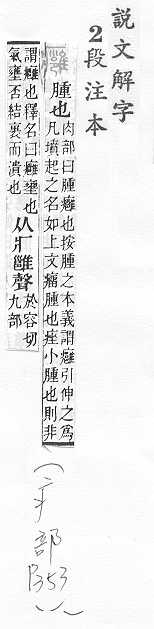 說文解字
2段注本
癰
腫也
肉部曰腫癰也按腫之本義謂癰引伸之爲
凡墳起之名如上文瘤腫也痤小腫也則非
謂癰也釋名曰癰壅也
氣壅否結裹而潰也
从疒雝聲
於容切
九部
(疒部
P353)